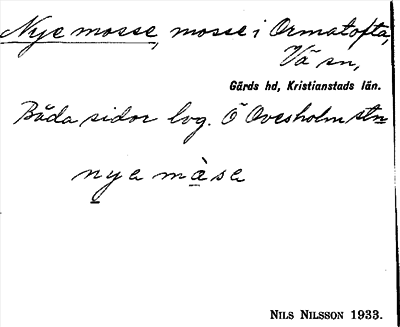 Nye mosse, mosse i Ormatofta,
Vä sn,
Gärds hd, Kristianstads län.
Båda sidor lvg. Ö Ovesholm stn
nye måse
NILS NILSSON 1933.